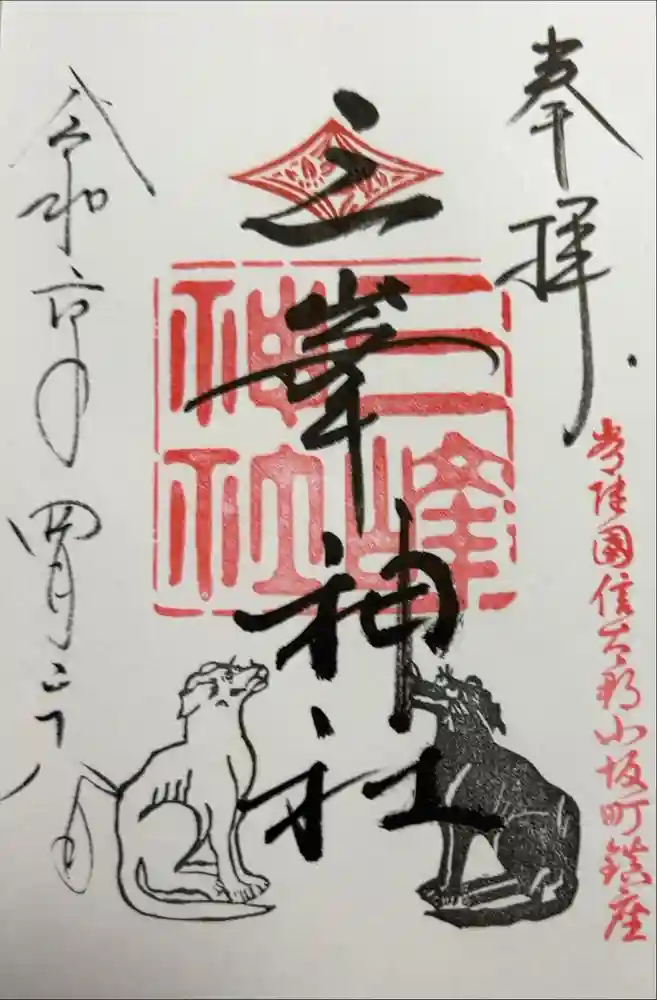 奉拝
常陸国信太郡小坂町鎮座
三峯神社
三峰神社
令和六年四月二十八日